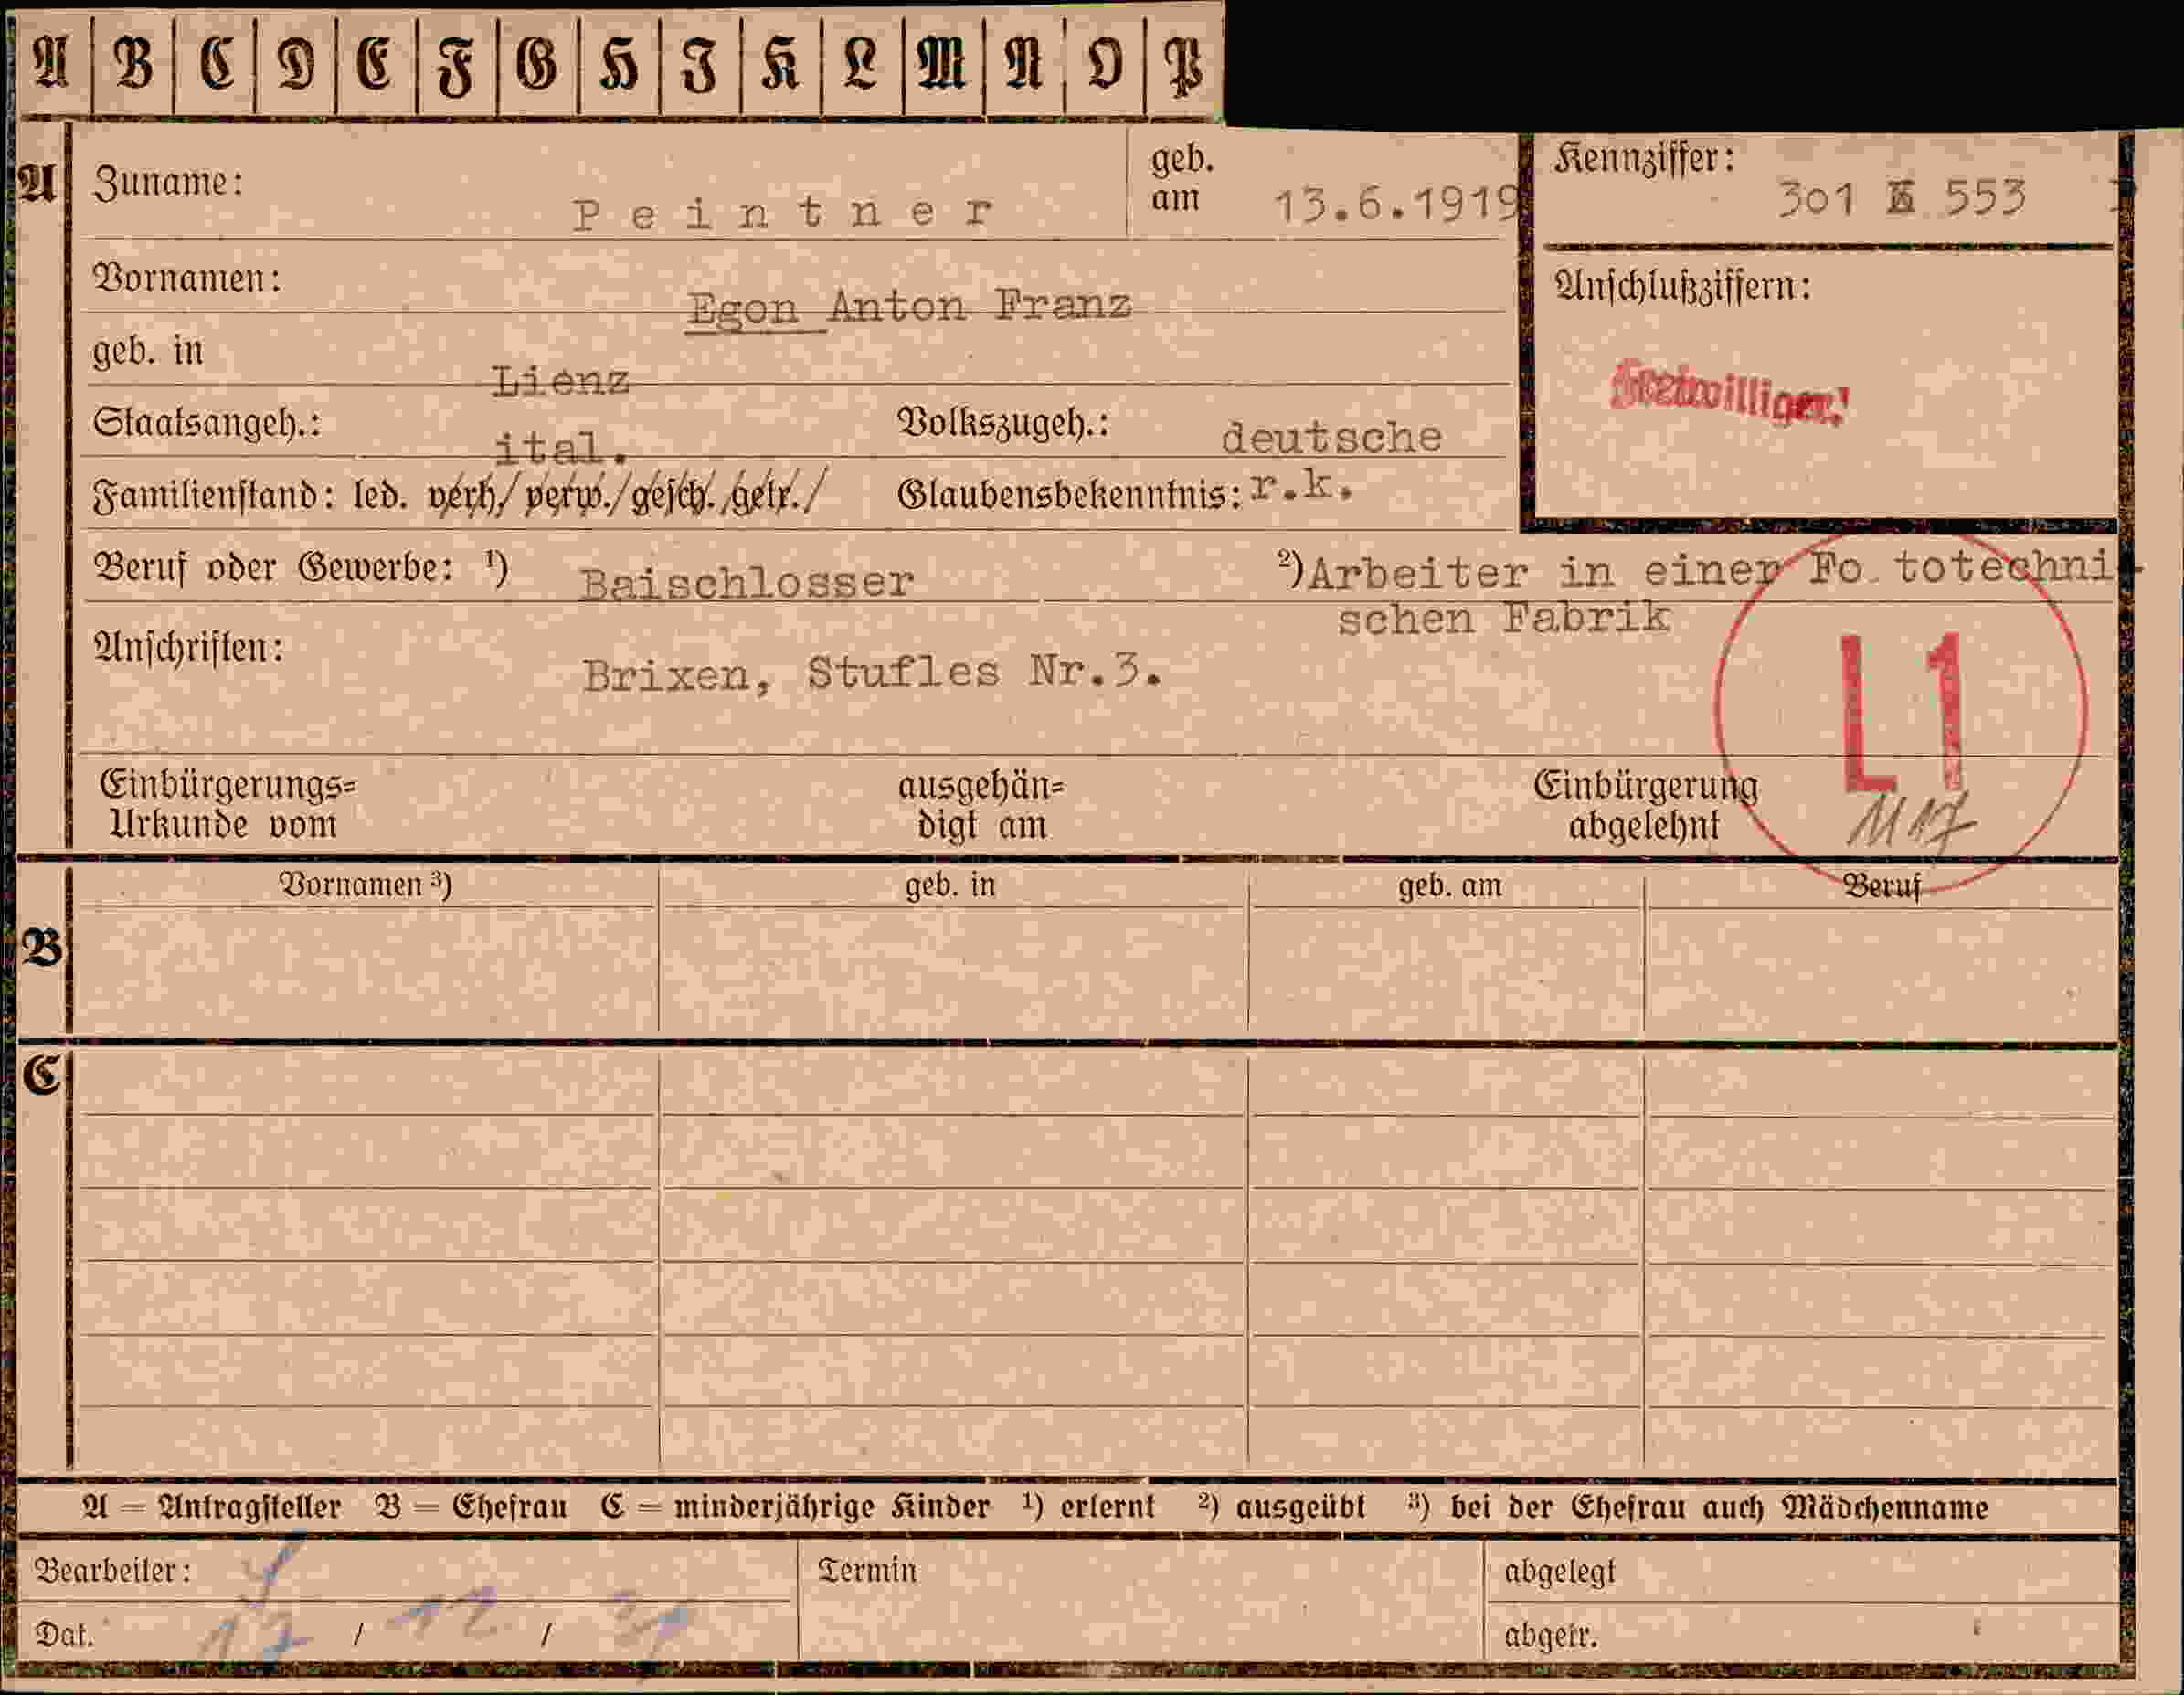 A B C D E F G H I K L M N O P
A Zuname: Peintner geb. am 13.6.1919 Kennziffer: 301 553
Vornamen: Egon Anton Franz
Anschlußziffern:
geb. in Lienz
Freiwilliger!
Staatsangeh.: ital. Volkszugeh.: deutsche
Familienstand: led. verh/ verw./gesch./getr./ Glaubensbekenntnis: r.k.
Beruf oder Gewerbe: ¹) Baischlosser ²)Arbeiter in einer Fo totechni-
schen Fabrik
Anschriften: Brixen, Stufles Nr.3.
L1
Einbürgerungs= ausgehän= Einbürgerung
Urkunde vom digt am abgelehnt
Vornamen ³) geb. in geb. am Beruf
B
C
A = Antragsteller B = Ehefrau C = minderjährige Kinder ¹) erlernt ²) ausgeübt ³) bei der Ehefrau auch Mädchenname
Bearbeiter: Termin abgelegt
Dat. 17 / 12 / abgetr.